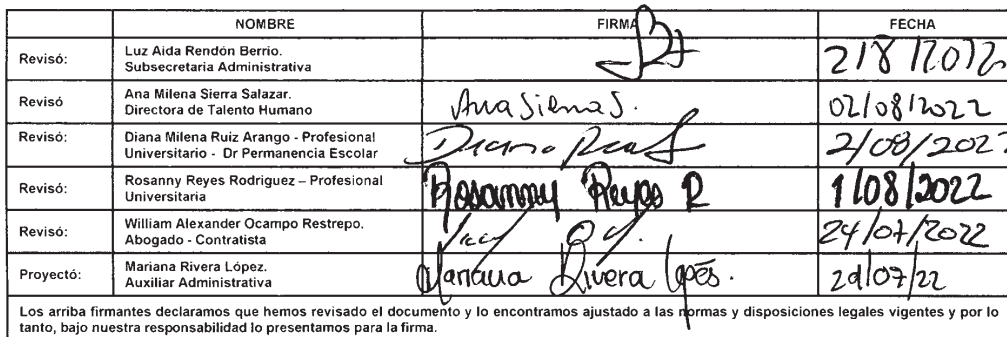 NOMBRE FIRMA FECHA
Revisó: Luz Aida Rendón Berrio.
Subsecretaria Administrativa
2/8/2022
Revisó Ana Milena Sierra Salazar.
Directora de Talento Humano
Ana Sierra S. 02/08/2022
Revisó: Diana Milena Ruiz Arango - Profesional
Universitario - Dr Permanencia Escolar
Diana 2/08/2022
Revisó: Rosanny Reyes Rodriguez – Profesional
Universitaria
Rosanny Reyes R 1/08/2022
Revisó: William Alexander Ocampo Restrepo.
Abogado - Contratista
24/07/2022
Proyectó: Mariana Rivera López.
Auxiliar Administrativa
Mariana Rivera López. 29/07/22
Los arriba firmantes declaramos que hemos revisado el documento y lo encontramos ajustado a las normas y disposiciones legales vigentes y por lo
tanto, bajo nuestra responsabilidad lo presentamos para la firma.